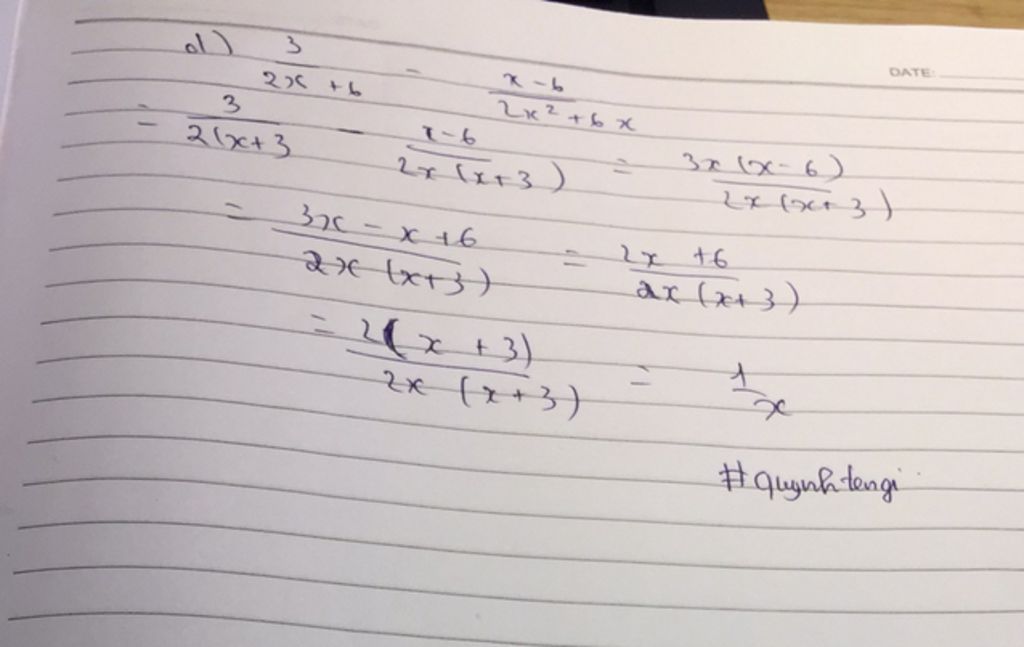 DATE:
d) 3/(2x + 6) - (x - 6)/(2x² + 6x)
= 3/(2(x + 3) - (x - 6)/(2x (x + 3)) = 3x (x - 6)/(2x (x + 3))
= (3x - x + 6)/(2x (x + 3)) = (2x + 6)/(2x (x + 3))
= 2(x + 3)/(2x (x + 3)) = 1/x
#quynhtengi